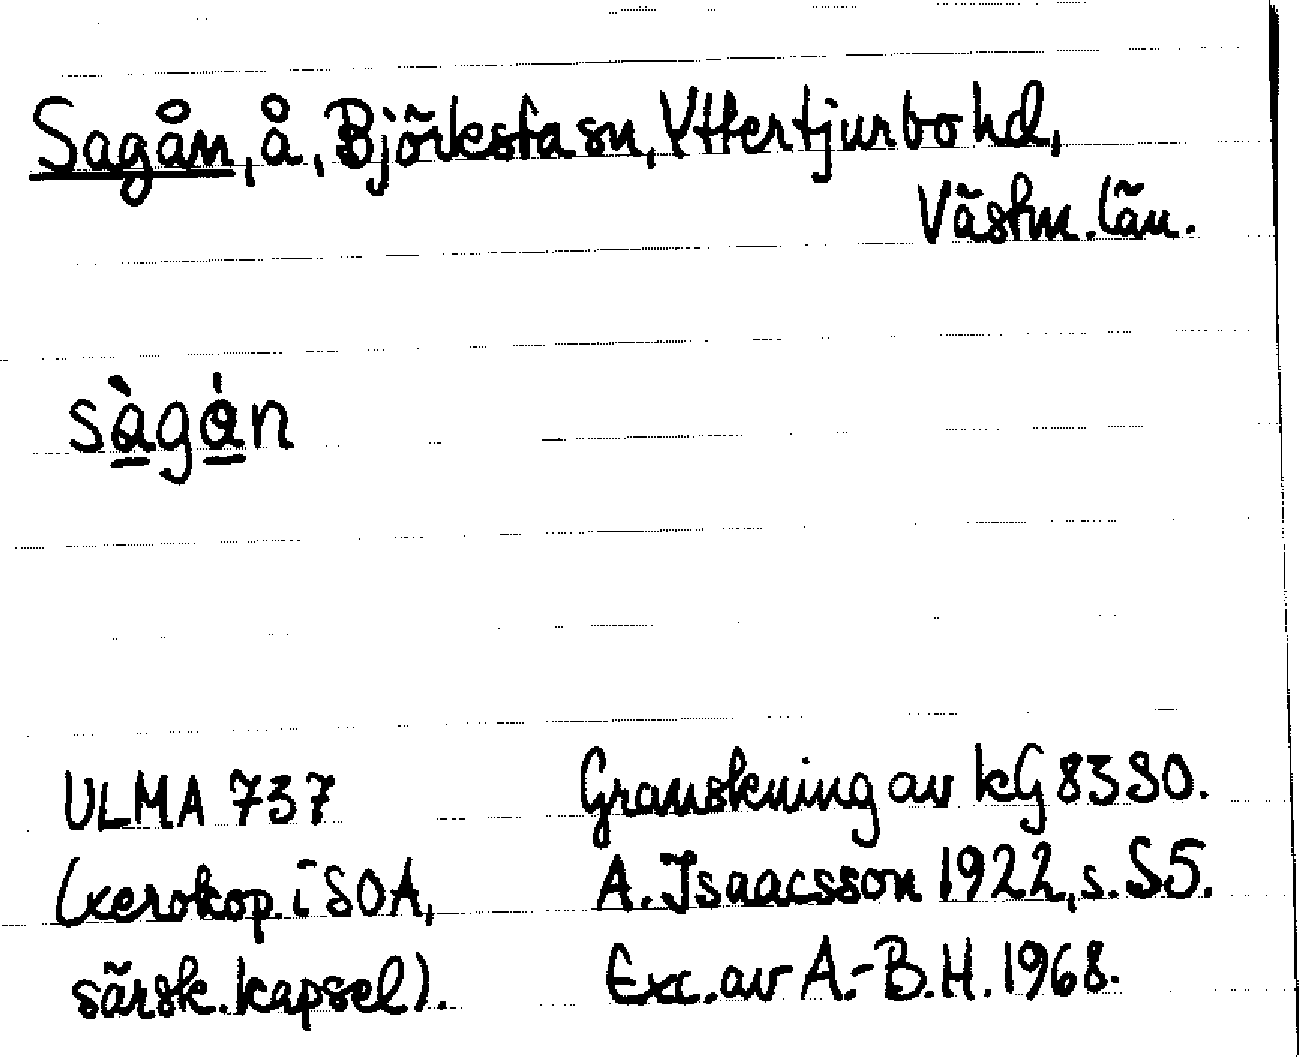 Sagån, å, Björksta sn, Yttertjurbo hd,
Västm. län.
sà̲gȧ̲n
ULMA 737
(xerokop. i SOA,
särsk. kapsel).
Granskning av kG 8380.
A. Isaacsson 1922, s. 85.
Exc. av A.-B.H. 1968.